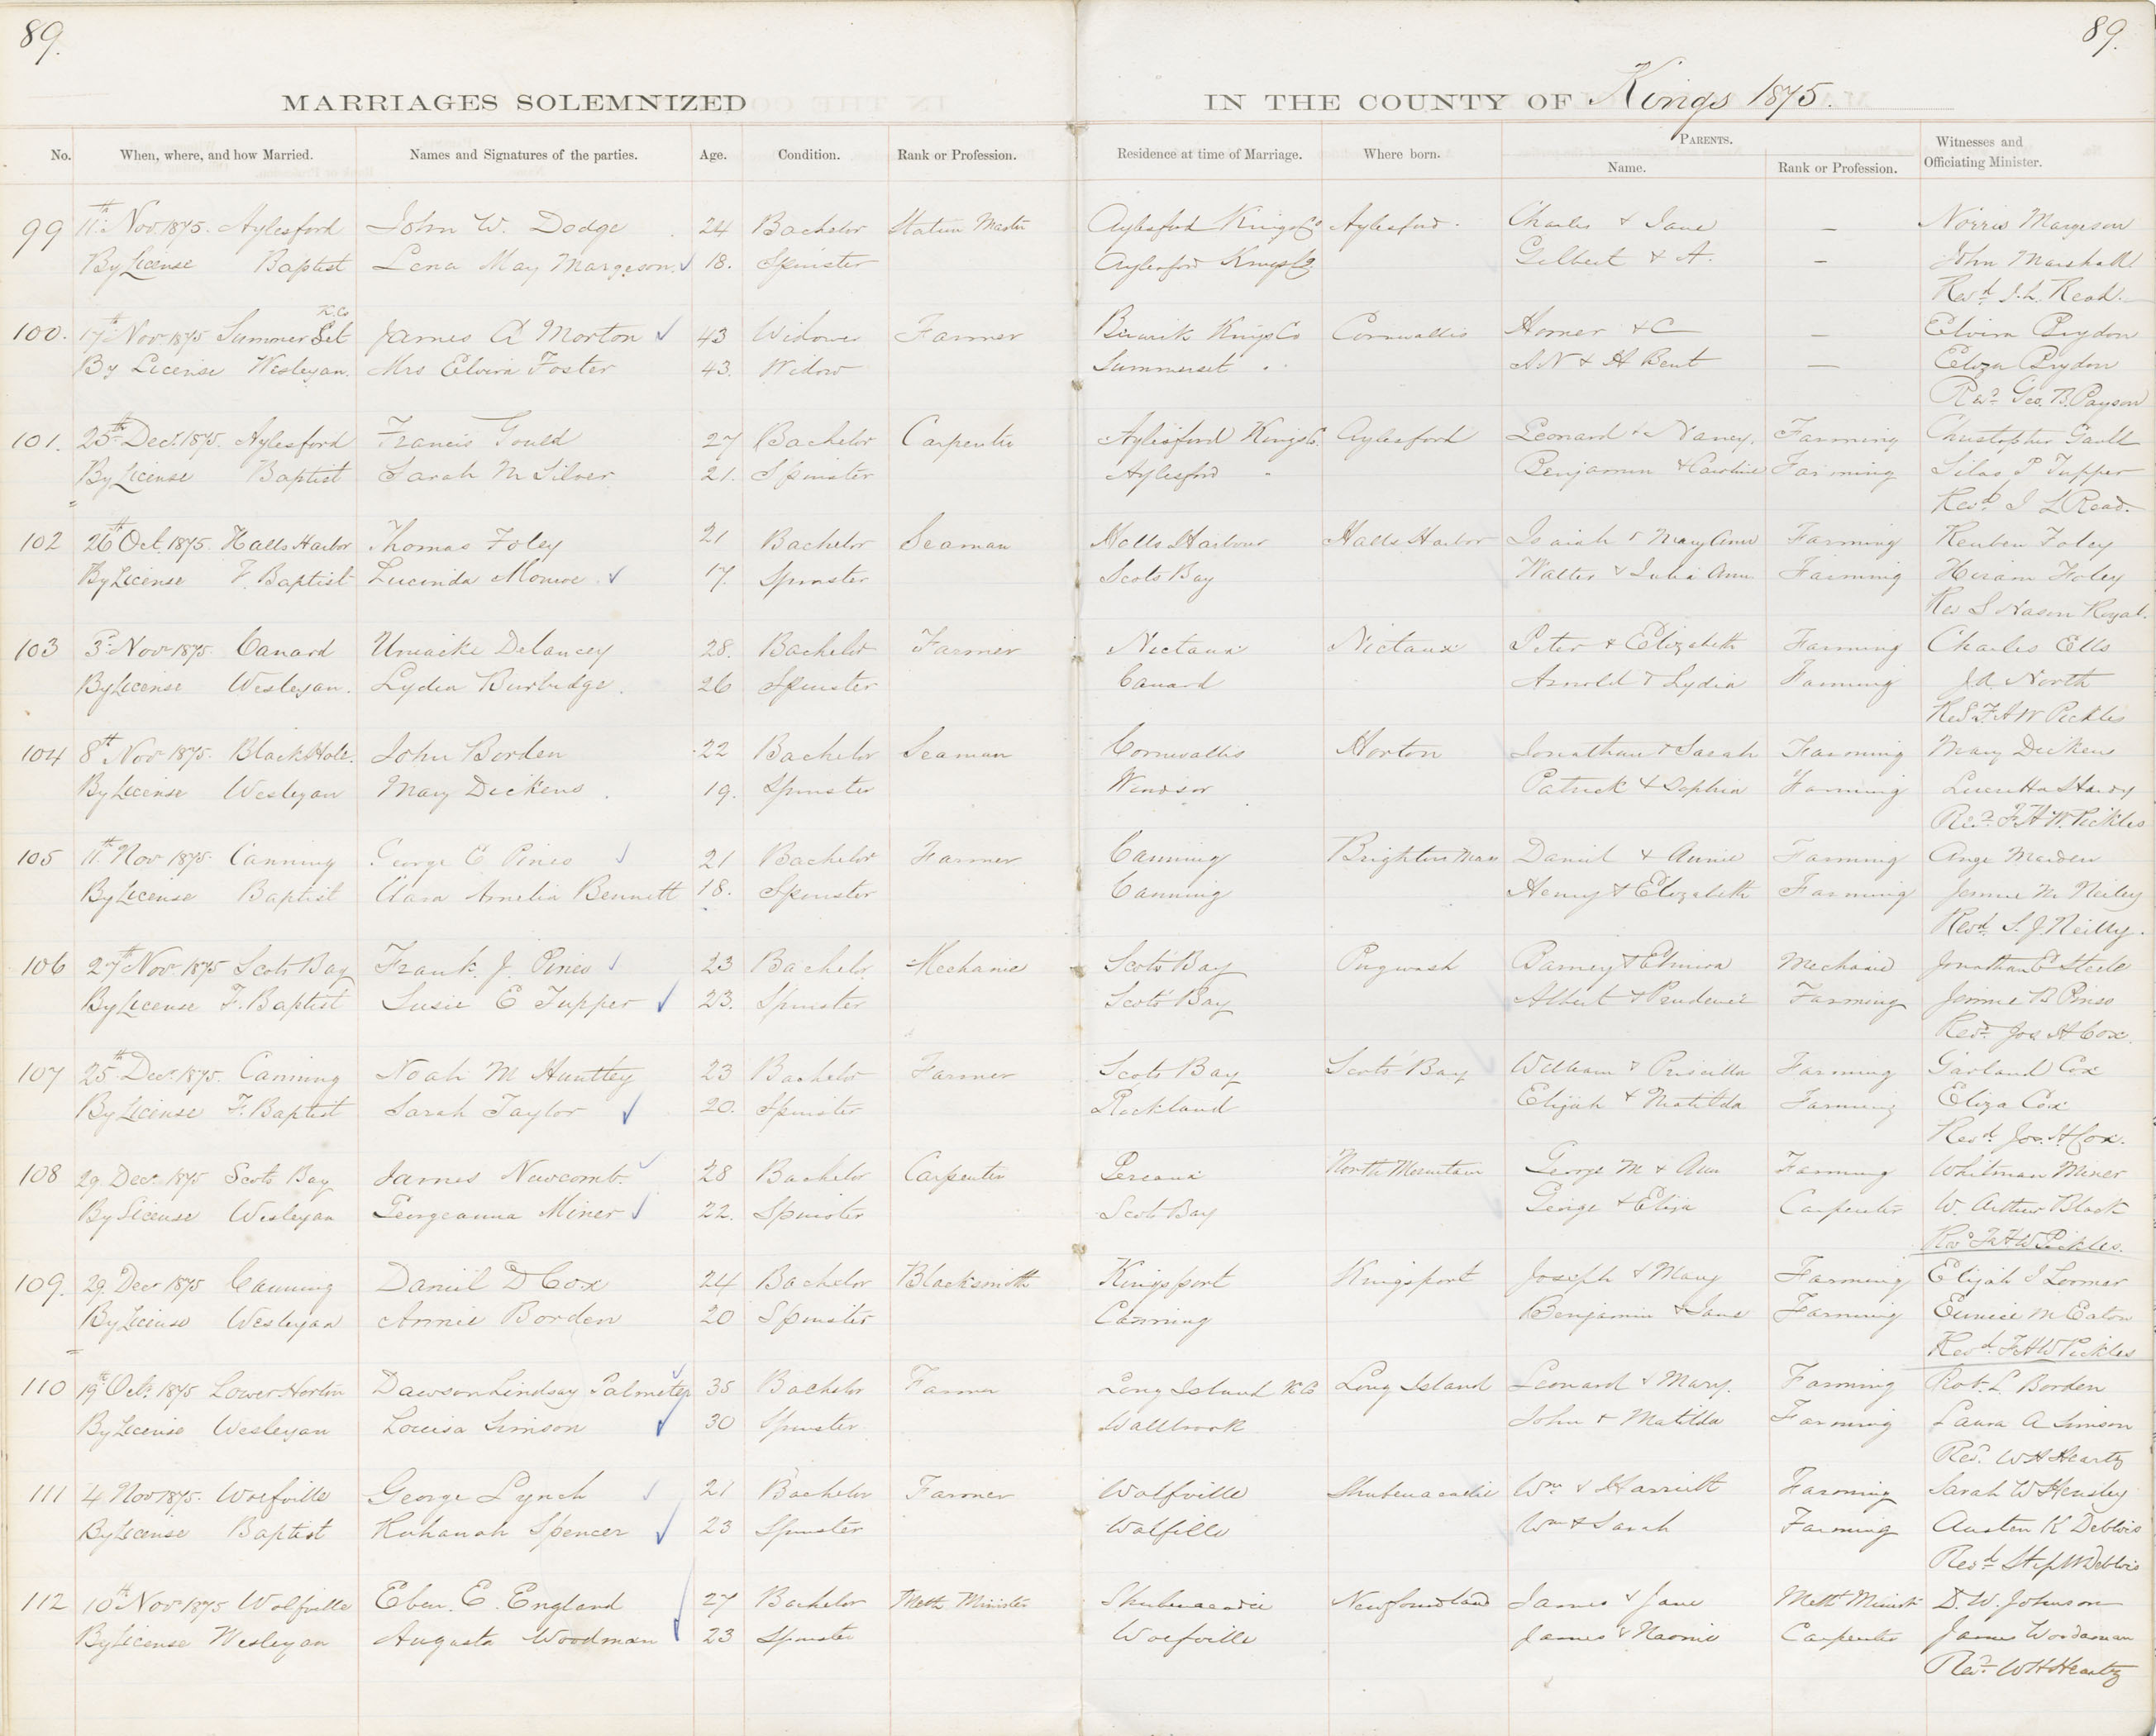 89.
89.
MARRIAGES SOLEMNIZED
IN THE COUNTY OF Kings 1875.
No. When, where, and how Married. Names and Signatures of the parties. Age. Condition. Rank or Profession. Residence at time of Marriage. Where born. PARENTS. Name. Rank or Profession. Witnesses and Officiating Minister.
99 11th Nov. 1875. Aylesford John W. Dodge 24 Bachelor Station Master Aylesford Kings Co Aylesford. Charles & Jane — Norris Margeson
By License Baptist Lena May Margeson 18. Spinster Aylesford Kings Co. Gilbert & A. — John Marshall
Revd J. L. Read.
K. Co
100. 17th Nov 1875 Summer Set James A Morton 43 Widower Farmer Berwick Kings Co Cornwallis Homer & C — Elvira Brydon
By License Wesleyan. Mrs Elvira Foster 43. Widow Summerset " S. N & H Bent — Eliza Brydon
Revd Geo. B. Payson
101. 25th Decr. 1875. Aylesford Francis Gould 27 Bachelor Carpenter Aylesford Kings Co. Aylesford Leonard & Nancy. Farming Christopher Gault
By License Baptist Sarah M Silver 21. Spinster Aylesford " Benjamin & Caroline Farming Silas P Tupper
Revd J L Read.
102 26th Oct. 1875. Halls Harbor Thomas Foley 21 Bachelor Seaman Halls Harbour Halls Harbor Isaiah & Mary Ann Farming Reuben Foley
By License F. Baptist Lucinda Monroe 17. Spinster Scots Bay Walter & Julia Ann Farming Hiram Foley
Rev S Nason Royal.
103 3d Novr 1875. Canard Uniacke Delancey 28. Bachelor Farmer Nictaux Nictaux Peter & Elizabeth Farming Charles Ells
By License Wesleyan. Lydia Burbidge. 26 Spinster Canard Arnold & Lydia Farming J. A. North
Rev F. H W Pickles
104 8th Novr 1875. Black Hole. John Borden 22 Bachelor Seaman Cornwallis Horton Jonathan & Sarah Farming Mary Dickens
By License Wesleyan Mary Dickens 19. Spinster Windsor Patrick & Sophia Farming Hardy
Revd F. H. W. Pickles
105 11th Nov 1875. Canning George E Pineo 21 Bachelor Farmer Canning Brighton Mass Daniel & Annie Farming Ange Marden
By License Baptist Clara Amelia Bennett 18. Spinster Canning Henry & Elizabeth Farming Jennie M Neiley
Revd. S. J. Neilly.
106 27th Novr 1875 Scots Bay Frank. J. Pineo 23 Bachelor Mechanic Scots Bay Pugwash Barney & Elmira Mechanic Jonathan E Steele
By License F. Baptist Susie E Tupper 23. Spinster Scots Bay Albert & Prudence Farming Jennie B Pineo
Revd. Jos H Cox.
107 25th Decr. 1875. Canning Noah M Huntley 23 Bachelor Farmer Scots Bay Scots Bay William & Priscilla Farming Garland Cox
By License F. Baptist Sarah Taylor 20. Spinster Rockland Elijah & Matilda Farming Eliza Cox
Revd. Jos. H Cox.
108 29 Decr 1875 Scots Bay James Newcomb. 28 Bachelor Carpenter Pereaux North Mountain George M & Ann Farming Whitman Miner
By License Wesleyan Georgeanna Miner 22. Spinster Scots Bay George & Eliza Carpenter W. Arthur Black
Revd F. H W Pickles.
109. 29 Decr 1875 Canning Daniel D Cox 24 Bachelor Blacksmith Kingsport Kingsport Joseph & Mary Farming Elijah J Loomer
By License Wesleyan Annie Borden 20 Spinster Canning Benjamin & Jane Farming Eunice M Eaton
Revd. F. H W Pickles
110 19th Octr. 1875 Lower Horton Dawson Lindsay Palmeter 35 Bachelor Farmer Long Island K Co Long Island Leonard & Mary. Farming Rob. L. Borden
By License Wesleyan Louisa Simson 30 Spinster Wallbrook John & Matilda Farming Laura A Simson
Revd. W H Heartz
111 4 Nov 1875. Wolfville George Lynch 21 Bachelor Farmer Wolfville Shubenacadie Wm & Harriett Farming Sarah W Hensley
By License Baptist Ruhanah Spencer 23 Spinster Wolfille Wm & Sarah Farming Austen K Deblois
Revd Step W Deblois
112 10th Novr 1875 Wolfville Eben. E. England 27 Bachelor Meth. Minister Shubenacadie Newfoundland James & Jane Meth Minister D. W. Johnson
By License Wesleyan Augusta Woodman 23 Spinster Wolfville James & Naomie Carpenter James Woodaman
Revd. W H Heartz